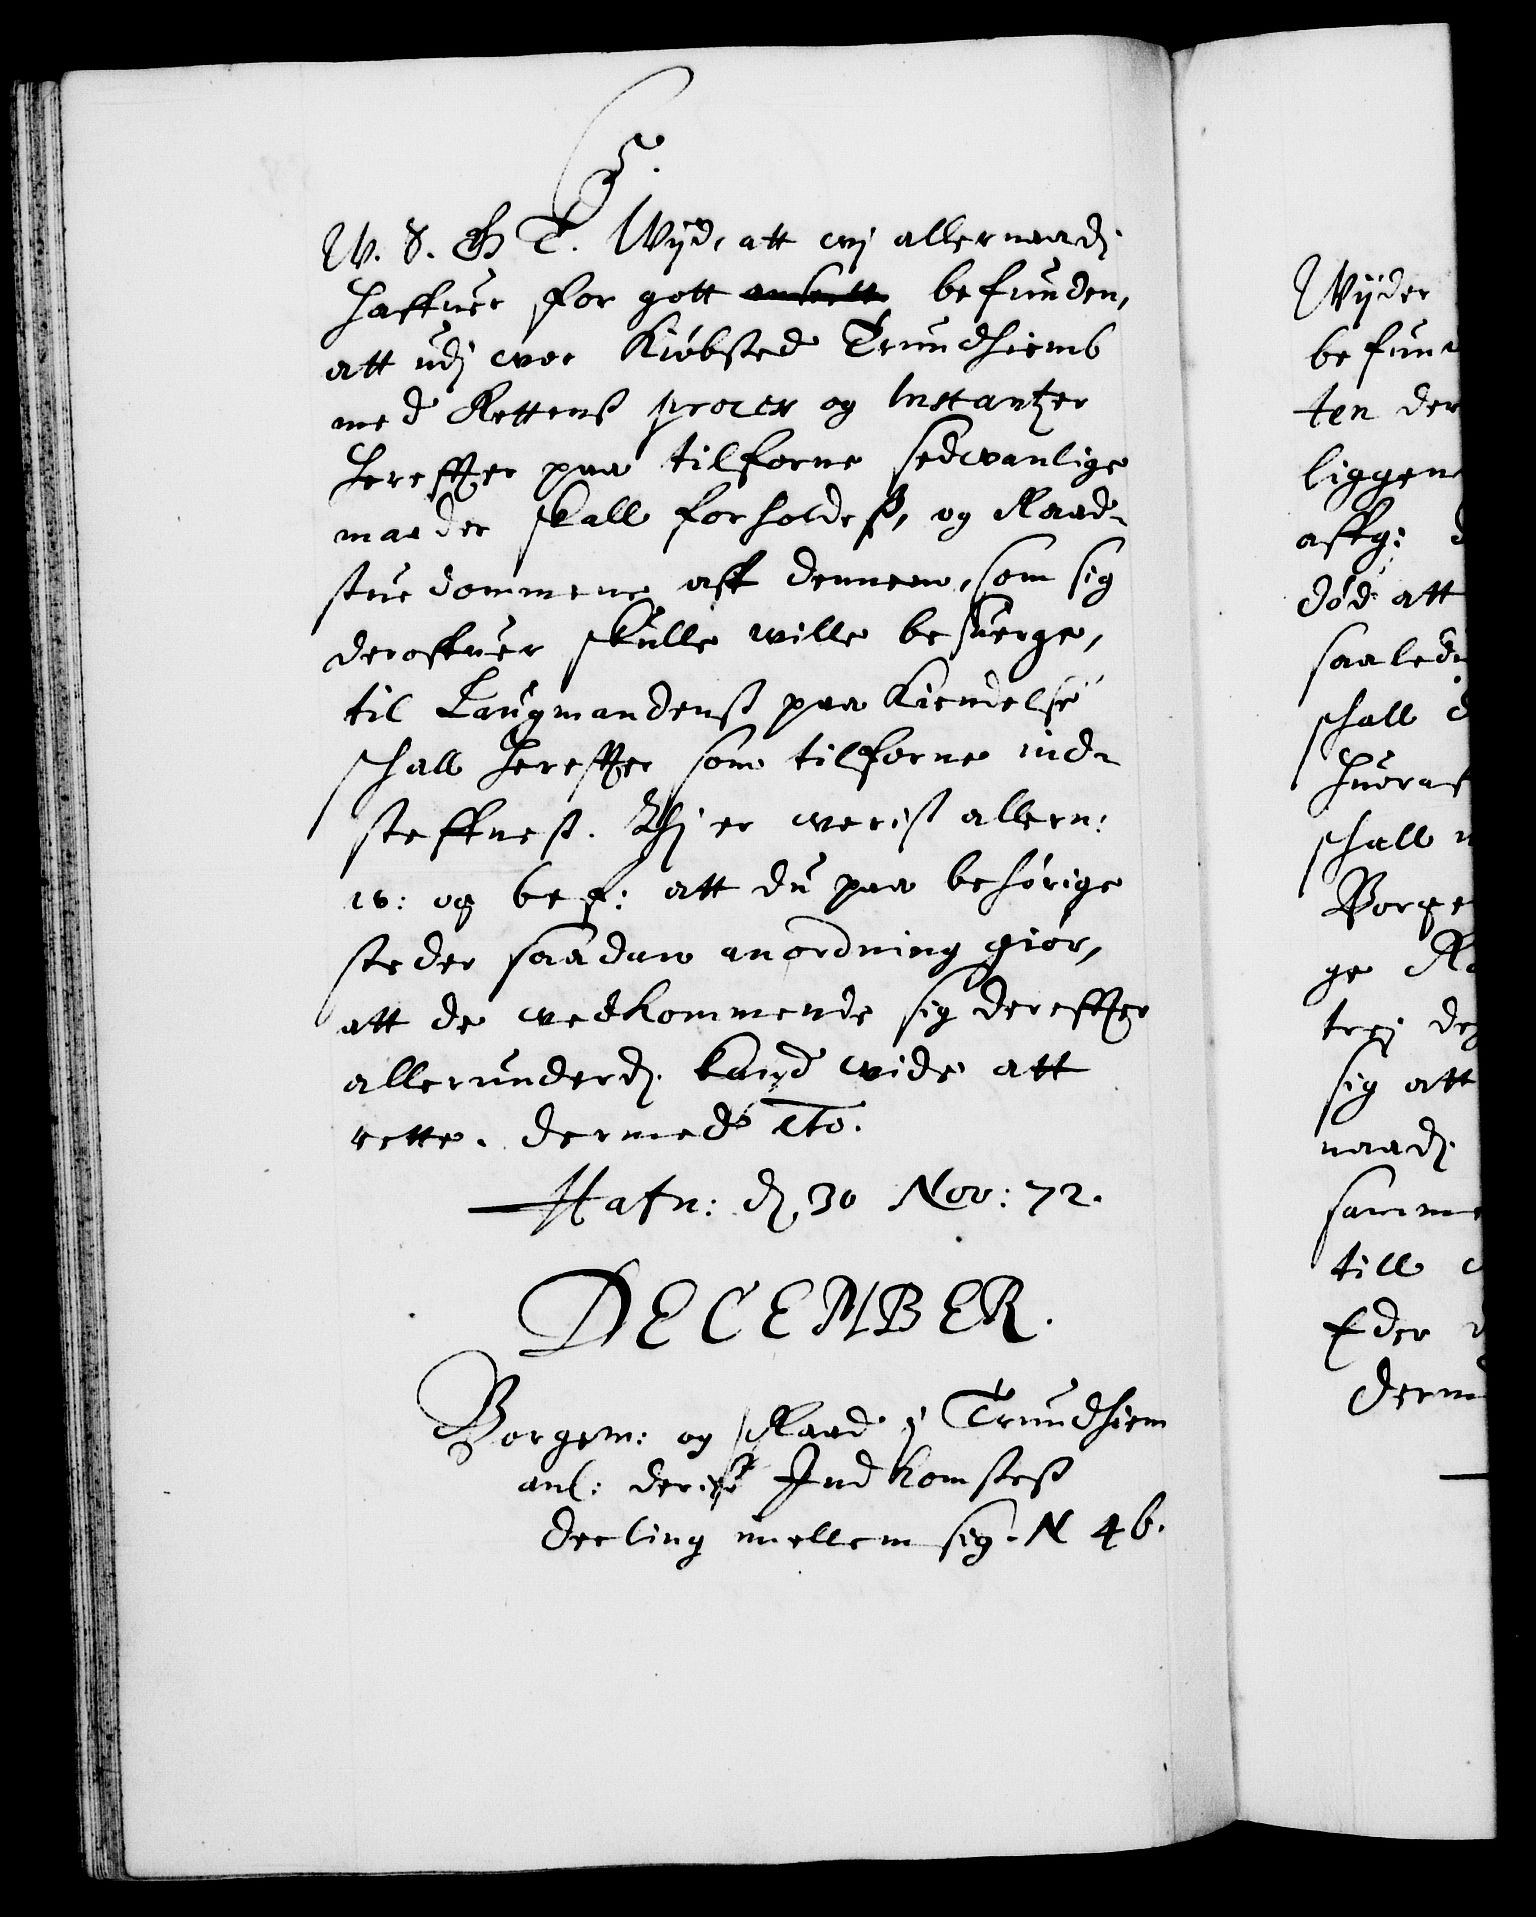 C5.
W. S. G T. Wijd, att wj allernaadj
haffuer for gott ansett befunden,
att udj wor Kiøbsted Trundhiemb
med Rettens proces og Instantzer
hereffter paa tilforne sedwanlige
maader skall forholdeß, og Raad-
stue dommene aff dennem, som sig
deroffuer skulle wille besuerge,
til Laugmandenß paa Kiendelse
schall hereffter som tilforne ind-
steffneß. Thj er worist allern:
w: og bef: att du paa behørige
steder saadan anordning giør,
att de wedkommende sig dereffter
allerunderdj. kand wide att
rette. dermed etc.
Hafn: dj 30 Nov: 72.
DECEMBER.
Borgem: og Raad j Trundhiem
anl: deriß Indkomsteß
deeling mellem sig. N 46.
Wijder
befun
ten der
liggen
affg:
død att
saaled
schall d
huoraf
schall
Borge
ge Ra
trej de
sig att
naadj.
samme
till
Eder
Derm